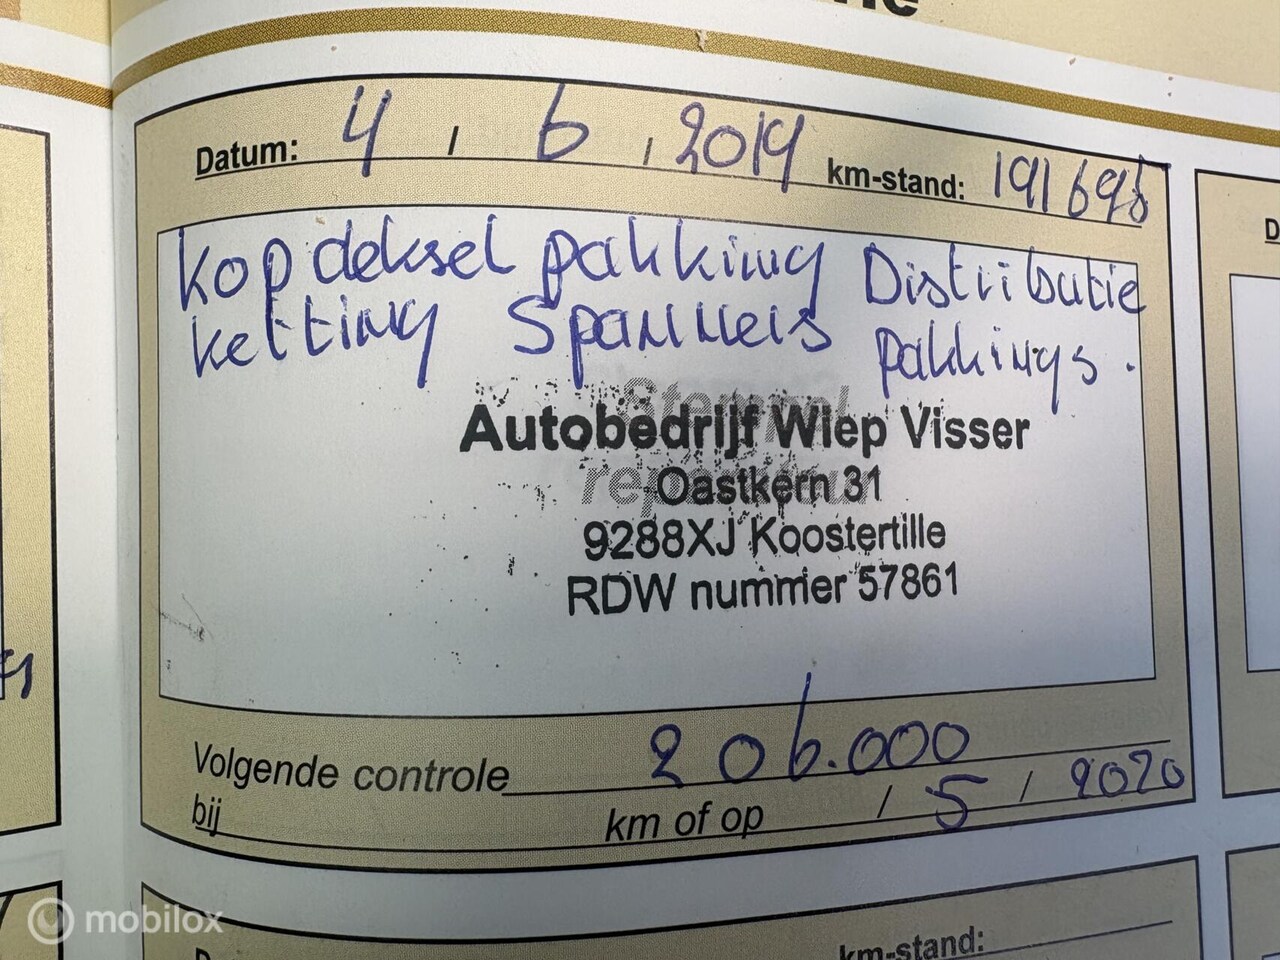 Datum: 4 / 6 / 2019 km-stand: 191698
Kop deksel pakking Distributie
ketting Spanners pakkings.
Stempel
Autobedrijf Wiep Visser
Oastkern 31
9288XJ Koostertille
RDW nummer 57861
Volgende controle 206.000
bij km of op / 5 / 2020
km-stand:
mobilox